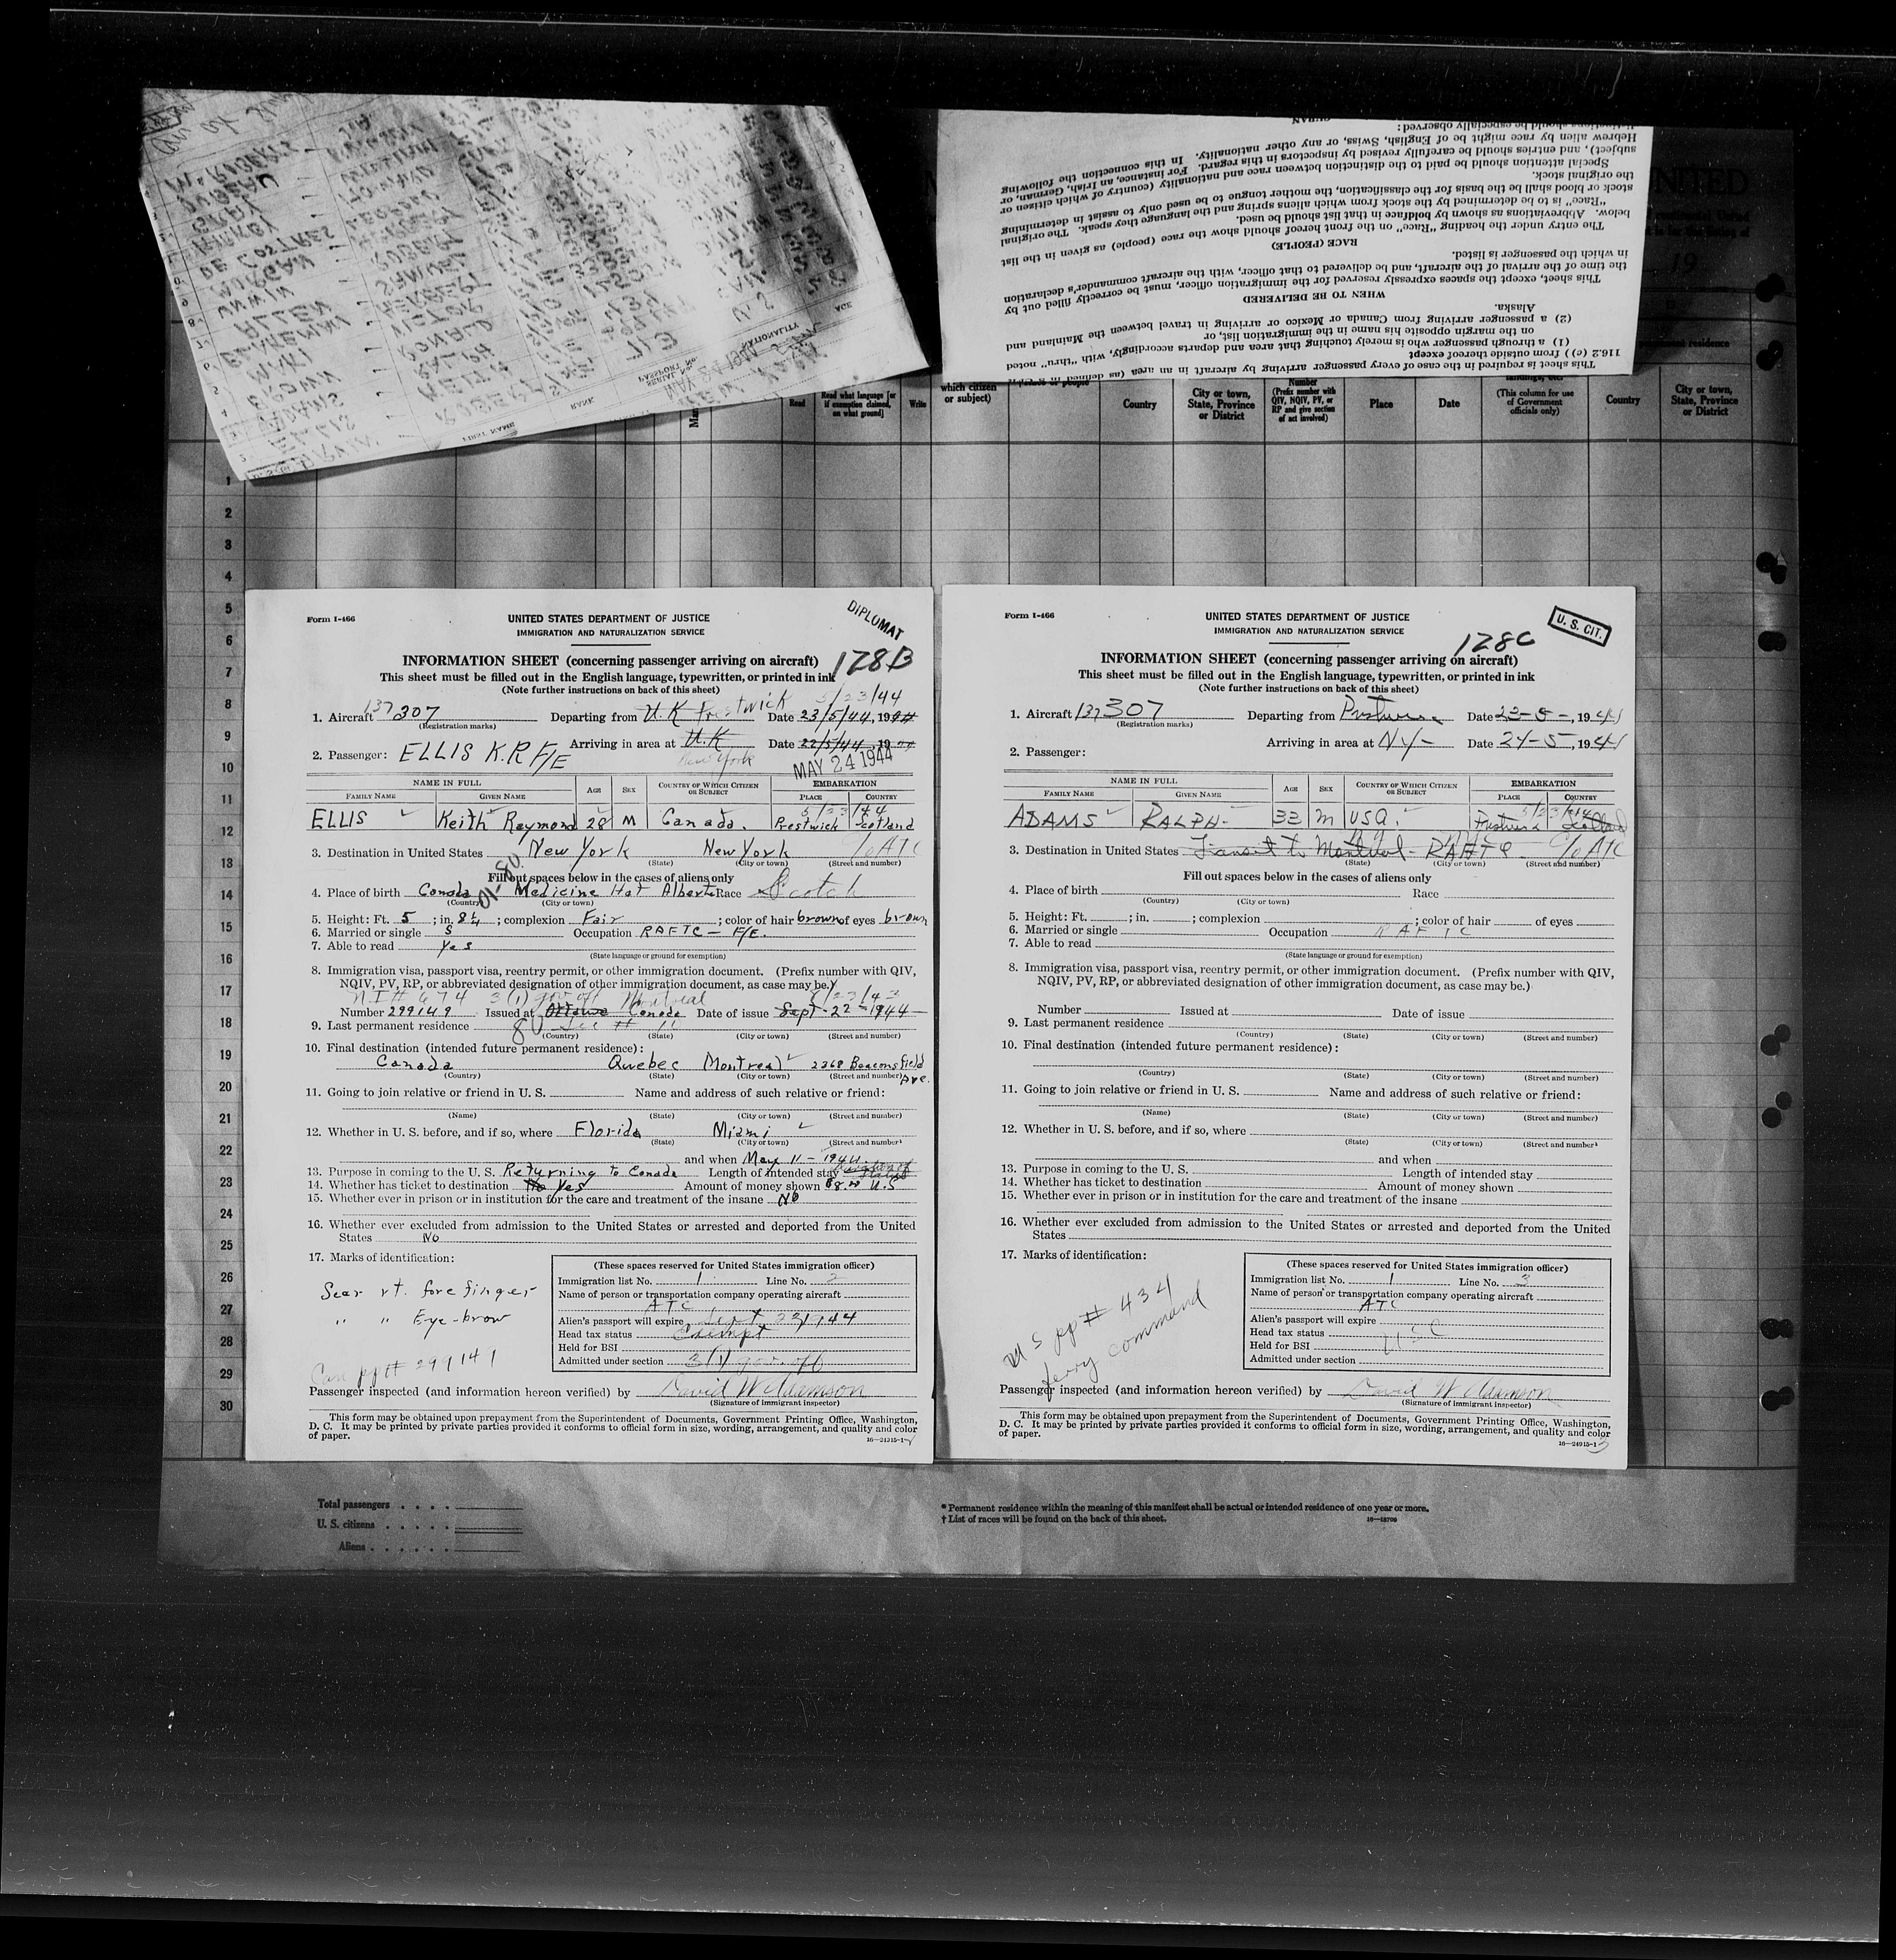 McROBERTS
DUBEAU
DE COSTRES
MURGAN
UNWIN
ALLEN
BLAKENEY
MAKI
BROWN
ADAMS
ELLIS
ROBERT
KEITH
RALPH
RONALD
VICTOR
HERBERT
FIRST NAME
RANK
PASSPORT No.
SERIAL No.
MAY 24 1944
NATIONALITY
AGE
NEW YORK
713
This sheet is required in the case of every passenger arriving by aircraft in an area (as defined in
116.2 (c)) from outside thereof except
(1) a through passenger who is merely touching that area and departs accordingly, with "thru" noted
on the margin opposite his name in the immigration list, or
(2) a passenger arriving from Canada or Mexico or arriving in travel between the Mainland and
Alaska.
WHEN TO BE DELIVERED
This sheet, except the spaces expressly reserved for the immigration officer, must be correctly filled out by
the time of the arrival of the aircraft, and be delivered to that officer, with the aircraft commander's declaration
in which the passenger is listed.
RACE (PEOPLE)
The entry under the heading "Race" on the front hereof should show the race (people) as given in the list
below. Abbreviations as shown by boldface in that list should be used.
"Race" is to be determined by the stock from which aliens spring and the language they speak. The original
stock or blood shall be the basis for the classification, the mother tongue to be used only to assist in determining
the original stock.
Special attention should be paid to the distinction between race and nationality (country of which citizen or
subject), and entries should be carefully revised by inspectors in this regard. For instance, an Irish, German, or
Hebrew alien by race might be of English, Swiss, or any other nationality. In this connection the following
distinctions should be especially observed:
CUBAN
UNITED
19
permanent residence
Read
Read what language [or
if exemption claimed,
on what ground]
Write
which citizen
or subject)
Country
City or town,
State, Province
or District
Number
(Prefix number with
QIV, NQIV, PV, or
RP and give section
of act involved)
Place
Date
(This column for use
of Government
officials only)
Country
City or town,
State, Province
or District
1
2
3
4
5
6
7
8
9
10
11
12
13
14
15
16
17
18
19
20
21
22
23
24
25
26
27
28
29
30
Form I-466
UNITED STATES DEPARTMENT OF JUSTICE
IMMIGRATION AND NATURALIZATION SERVICE
DIPLOMAT
128B
INFORMATION SHEET (concerning passenger arriving on aircraft)
This sheet must be filled out in the English language, typewritten, or printed in ink
(Note further instructions on back of this sheet)
5/23/44
1. Aircraft 137307 Departing from U.K Prestwick Date 23/5/44, 1944
(Registration marks)
Arriving in area at U.K Date 22/5/44, 19
New York
MAY 24 1944
2. Passenger: ELLIS K.R F/E
NAME IN FULL AGE SEX COUNTRY OF WHICH CITIZEN OR SUBJECT EMBARKATION
FAMILY NAME GIVEN NAME PLACE COUNTRY
5/23/44
ELLIS Keith Raymond 28 M Canada. Prestwick Scotland
3. Destination in United States New York New York % ATC
(State) (City or town) (Street and number)
01-80
Fill out spaces below in the cases of aliens only
4. Place of birth Canada Medicine Hat Alberta Race Scotch
(Country) (City or town)
5. Height: Ft. 5; in. 8½; complexion Fair; color of hair brown of eyes brown
6. Married or single S Occupation RAFTC – F/E.
7. Able to read Yes
(State language or ground for exemption)
8. Immigration visa, passport visa, reentry permit, or other immigration document. (Prefix number with QIV,
NQIV, PV, RP, or abbreviated designation of other immigration document, as case may be.)
NI# 674 3(1) gov off Montreal 8/23/43
Number 299149 Issued at Ottawa Canada Date of issue Sept-22-1944
9. Last permanent residence See # 11
(Country) (State) (City or town) (Street and number)
10. Final destination (intended future permanent residence):
Canada Quebec Montreal 2268 Beaconsfield Ave.
(Country) (State) (City or town) (Street and number)
11. Going to join relative or friend in U. S. Name and address of such relative or friend:
(Name) (State) (City or town) (Street and number)
12. Whether in U. S. before, and if so, where Florida Miami
(State) (City or town) (Street and number)
and when May 11-1944.
13. Purpose in coming to the U. S. Returning to Canada Length of intended stay
14. Whether has ticket to destination No Yes Amount of money shown $8.00 U.S
15. Whether ever in prison or in institution for the care and treatment of the insane No
16. Whether ever excluded from admission to the United States or arrested and deported from the United
States No
17. Marks of identification:
Scar rt. forefinger
" " Eye-brow
Can pp# 299141
(These spaces reserved for United States immigration officer)
Immigration list No. 1 Line No. 2
Name of person or transportation company operating aircraft
ATC
Alien's passport will expire Sept 22/944
Head tax status Exempt
Held for BSI
Admitted under section 3(1) gov. off
Passenger inspected (and information hereon verified) by David W Adamson
(Signature of immigrant inspector)
This form may be obtained upon prepayment from the Superintendent of Documents, Government Printing Office, Washington,
D. C. It may be printed by private parties provided it conforms to official form in size, wording, arrangement, and quality and color
of paper.
16—24915-1
Form I-466
UNITED STATES DEPARTMENT OF JUSTICE
IMMIGRATION AND NATURALIZATION SERVICE
U. S. CIT.
128C
INFORMATION SHEET (concerning passenger arriving on aircraft)
This sheet must be filled out in the English language, typewritten, or printed in ink
(Note further instructions on back of this sheet)
1. Aircraft 137307 Departing from Date 23-5-, 1944
(Registration marks)
Arriving in area at NY- Date 24-5, 1944
2. Passenger:
NAME IN FULL AGE SEX COUNTRY OF WHICH CITIZEN OR SUBJECT EMBARKATION
FAMILY NAME GIVEN NAME PLACE COUNTRY
5/23/44
ADAMS RALPH- 33 M USA. Scotland
3. Destination in United States Transit to Montreal - RAFTC % ATC
(State) (City or town) (Street and number)
Fill out spaces below in the cases of aliens only
4. Place of birth Race
(Country) (City or town)
5. Height: Ft. ; in. ; complexion ; color of hair of eyes
6. Married or single Occupation RAFTC
7. Able to read
(State language or ground for exemption)
8. Immigration visa, passport visa, reentry permit, or other immigration document. (Prefix number with QIV,
NQIV, PV, RP, or abbreviated designation of other immigration document, as case may be.)
Number Issued at Date of issue
9. Last permanent residence
(Country) (State) (City or town) (Street and number)
10. Final destination (intended future permanent residence):
(Country) (State) (City or town) (Street and number)
11. Going to join relative or friend in U. S. Name and address of such relative or friend:
(Name) (State) (City or town) (Street and number)
12. Whether in U. S. before, and if so, where
(State) (City or town) (Street and number)
and when
13. Purpose in coming to the U. S. Length of intended stay
14. Whether has ticket to destination Amount of money shown
15. Whether ever in prison or in institution for the care and treatment of the insane
16. Whether ever excluded from admission to the United States or arrested and deported from the United
States
17. Marks of identification:
US pp# 434
ferry command
(These spaces reserved for United States immigration officer)
Immigration list No. 1 Line No. 3
Name of person or transportation company operating aircraft
ATC
Alien's passport will expire
Head tax status USC
Held for BSI
Admitted under section
Passenger inspected (and information hereon verified) by David W Adamson
(Signature of immigrant inspector)
This form may be obtained upon prepayment from the Superintendent of Documents, Government Printing Office, Washington,
D. C. It may be printed by private parties provided it conforms to official form in size, wording, arrangement, and quality and color
of paper.
16—24915-1
3
Total passengers . . . .
U. S. citizens . . . . .
Aliens . . . . . .
* Permanent residence within the meaning of this manifest shall be actual or intended residence of one year or more.
† List of races will be found on the back of this sheet.
16—18709